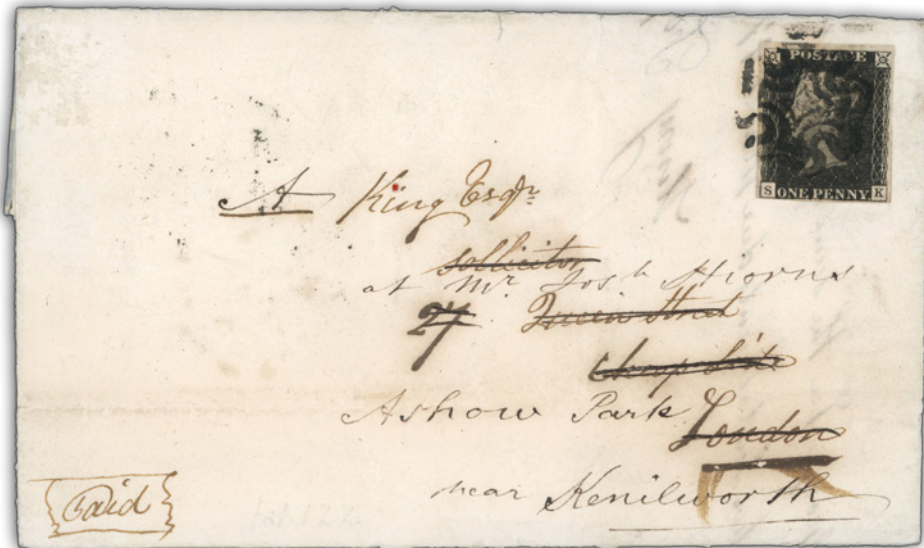 POSTAGE
S ONE PENNY K
A King Esqr
sollicitor
at Mr Josh Hiorns
27 Queen Street
Cheapside
Ashow Park London
near Kenilworth
Paid